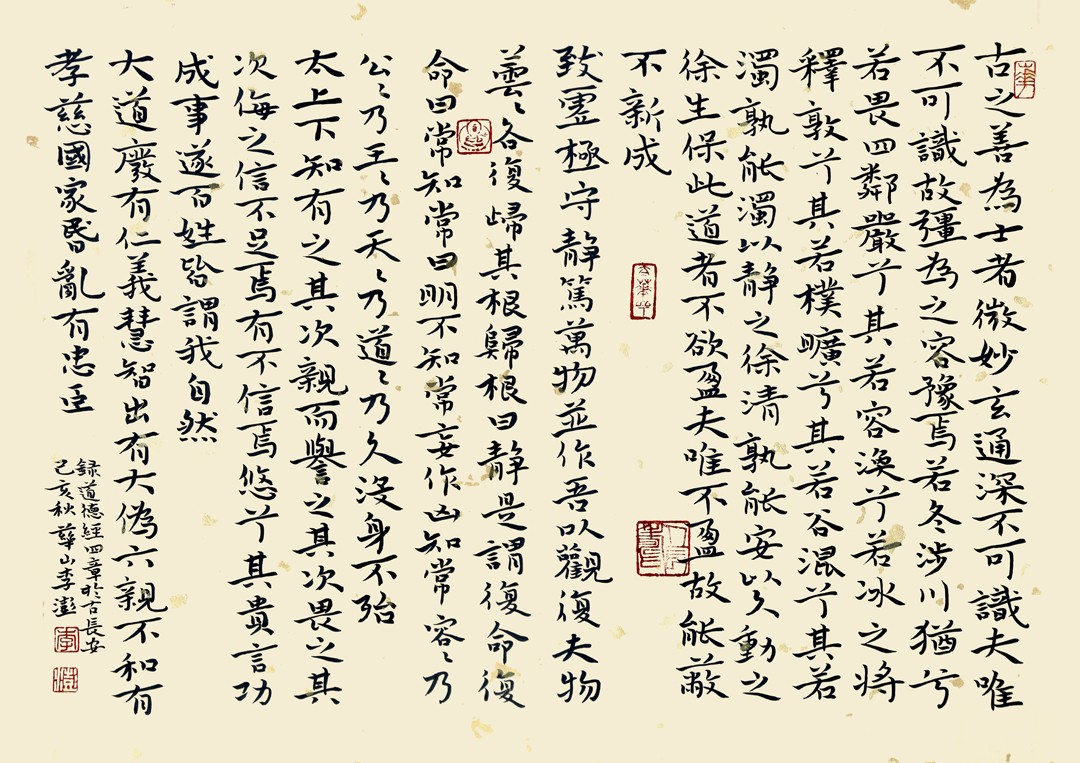 古之善為士者微妙玄通深不可識夫唯
不可識故彊為之容豫焉若冬涉川猶兮
若畏四鄰嚴兮其若容渙兮若冰之將
釋敦兮其若樸曠兮其若谷混兮其若
濁孰能濁以靜之徐清孰能安以久動之
徐生保此道者不欲盈夫唯不盈故能蔽
不新成
致虛極守靜篤萬物並作吾以觀復夫物
蕓〻各復歸其根歸根曰靜是謂復命復
命曰常知常曰明不知常妄作凶知常容〻乃
公〻乃王〻乃天〻乃道〻乃久沒身不殆
太上下知有之其次親而譽之其次畏之其
次侮之信不足焉有不信焉悠兮其貴言功
成事遂百姓皆謂我自然
大道廢有仁義慧智出有大偽六親不和有
孝慈國家昏亂有忠臣
錄道德經四章於古長安
己亥秋華山李澎